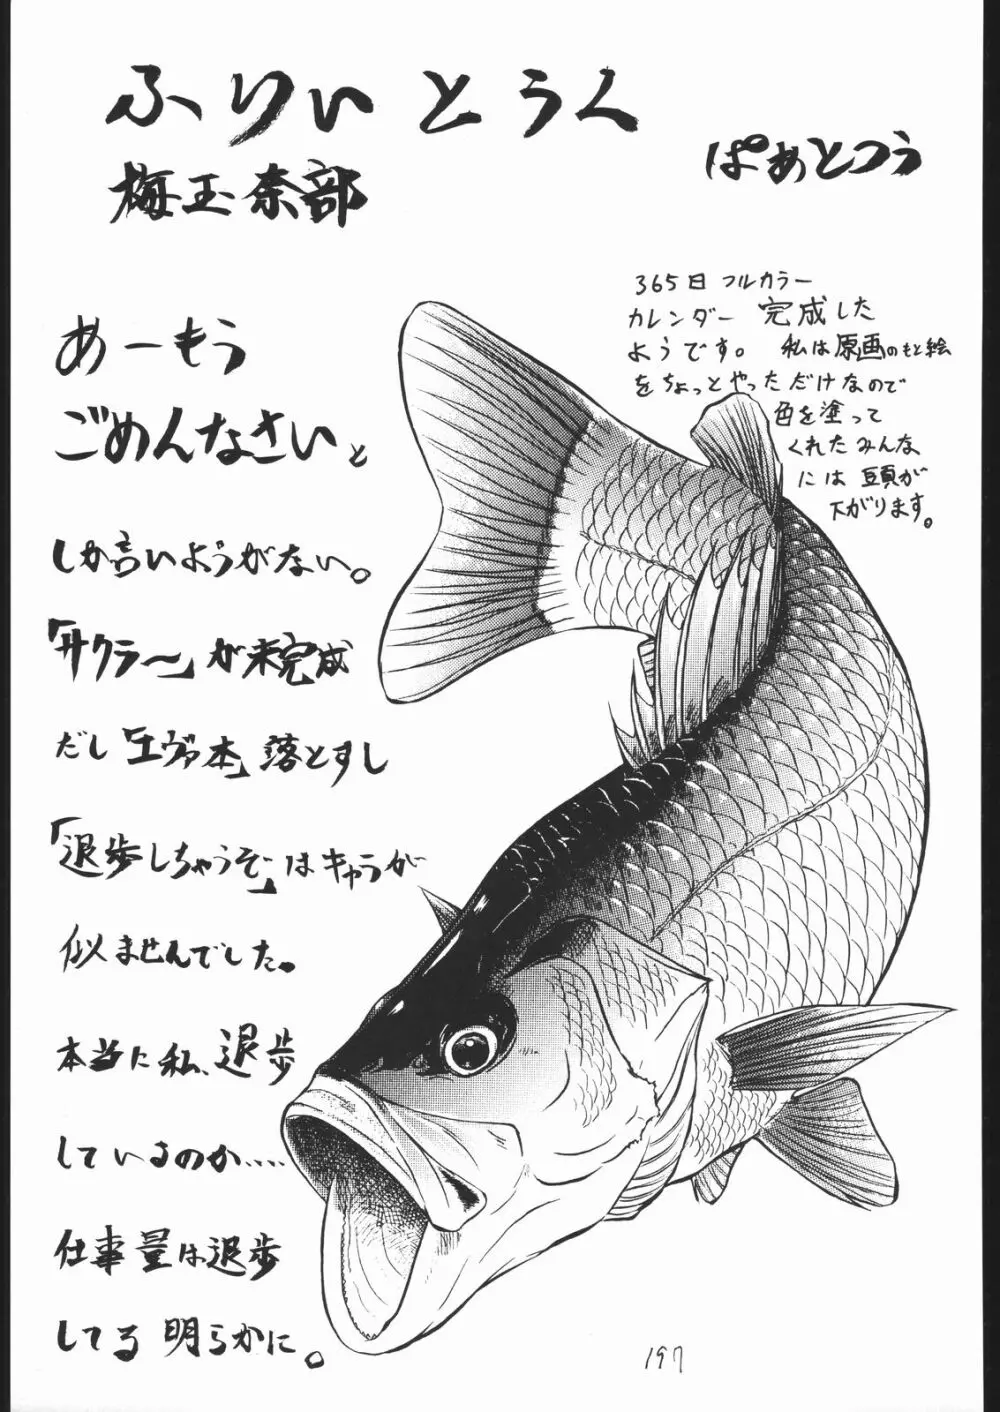 ふりぃとうく
ぱぁとつう
梅玉奈部
365日 フルカラー
カレンダー 完成した
ようです。 私は原画のもと絵
をちょっとやっただけなので
色を塗って
くれたみんな
には 頭が
下がります。
あーもう
ごめんなさいと
しか言いようがない。
「サクラ〜」が未完成
だし「エヴァ本」落とすし
「退歩しちゃうぞ」はキャラが
似ませんでした。
本当に私、退歩
しているのか‥‥
仕事量は退歩
してる 明らかに。
197